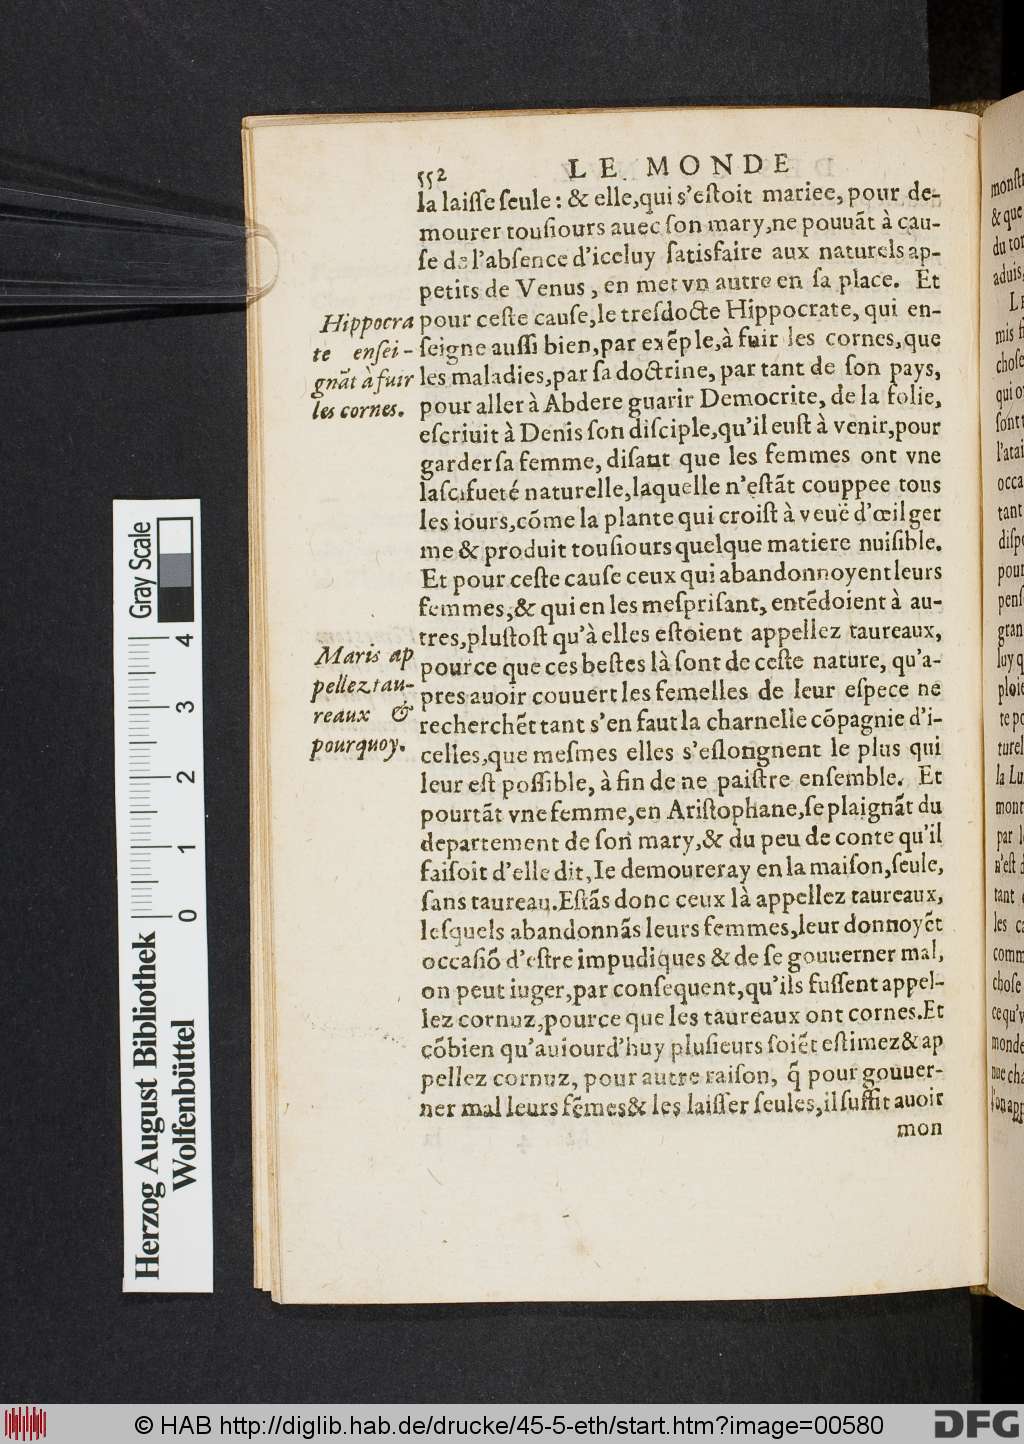 552
LE MONDE
la laisse seule: & elle,qui s'estoit mariee, pour de-
mourer tousiours auec son mary,ne pouuãt à cau-
se de l'absence d'iceluy satisfaire aux naturels ap-
petits de Venus, en met vn autre en sa place. Et
pour ceste cause,le tresdocte Hippocrate, qui en-
seigne aussi bien,par exẽple,à fuir les cornes,que
les maladies,par sa doctrine, par tant de son pays,
pour aller à Abdere guarir Democrite, de la folie,
escriuit à Denis son disciple,qu'il eust à venir,pour
garder sa femme, disant que les femmes ont vne
lasciueté naturelle,laquelle n'estãt couppee tous
les iours,cõme la plante qui croist à veuë d'œil ger
me & produit tousiours quelque matiere nuisible.
Et pour ceste cause ceux qui abandonnoyent leurs
femmes,& qui en les mesprisant, entẽdoient à au-
tres,plustost qu'à elles estoient appellez taureaux,
pource que ces bestes là sont de ceste nature, qu'a-
pres auoir couuert les femelles de leur espece ne
recherchẽt tant s'en faut la charnelle cõpagnie d'i-
celles,que mesmes elles s'eslongnent le plus qui
leur est possible, à fin de ne paistre ensemble. Et
pourtãt vne femme,en Aristophane,se plaignãt du
departement de son mary,& du peu de conte qu'il
faisoit d'elle dit, Ie demoureray en la maison,seule,
sans taureau.Estãs donc ceux là appellez taureaux,
lesquels abandonnãs leurs femmes,leur donnoyẽt
occasiõ d'estre impudiques & de se gouuerner mal,
on peut iuger,par consequent,qu'ils fussent appel-
lez cornuz,pource que les taureaux ont cornes.Et
cõbien qu'auiourd'huy plusieurs soiẽt estimez & ap
pellez cornuz, pour autre raison, q̃ pour gouuer-
ner mal leurs fẽmes & les laisser seules,il suffit auoir
mon
Hippocra
te ensei-
gnãt à fuir
les cornes.
Maris ap
pellez tau-
reaux &
pourquoy.
monst
& que
du tor
aduis,
mis f
chose
qui o
sont
l'atai
occa
tant
disp
pour
pens
gran
luy q
ploie
te po
turel
la Lu
mont
par l
n'est
tant
les ca
comm
chose
ce qu'v
monde
que cha
l'on app
Gray Scale
0 1 2 3 4
Herzog August Bibliothek
Wolfenbüttel
© HAB http://diglib.hab.de/drucke/45-5-eth/start.htm?image=00580
DFG